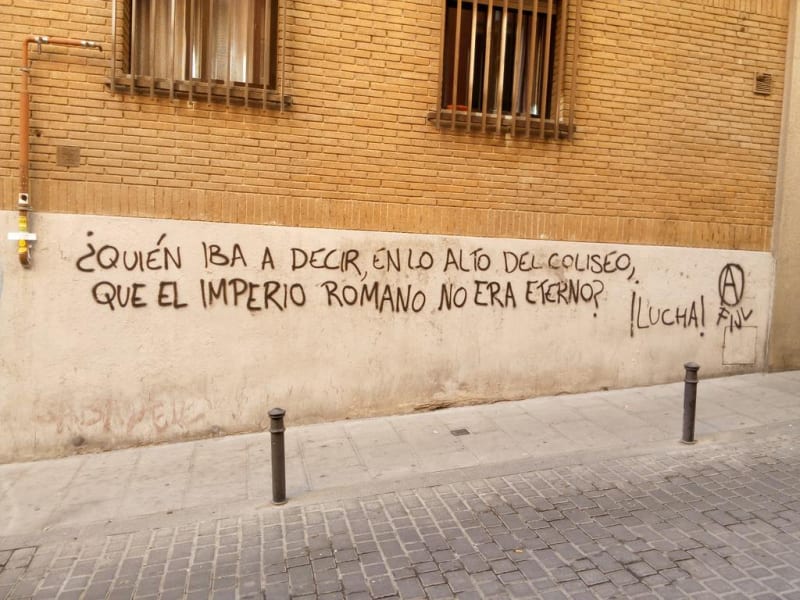 ¿QUIÉN IBA A DECIR, EN LO ALTO DEL COLISEO,
QUE EL IMPERIO ROMANO NO ERA ETERNO?
¡LUCHA!
A
FIJL